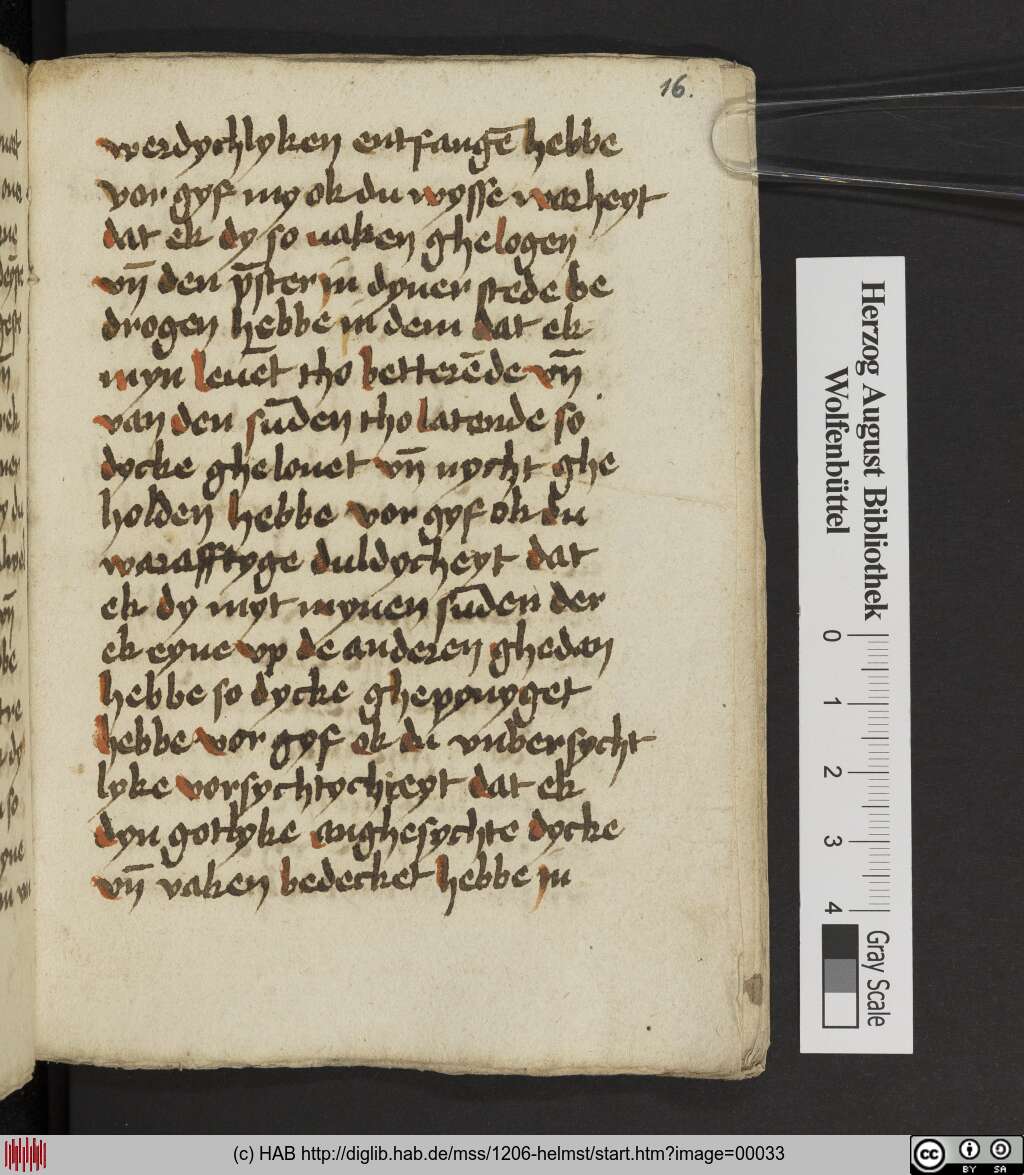 16.
werdychlyken entfangē hebbe
vor gyf my ok du wysse warheyt
dat ek dy so uaken ghelogen
vn̄ den p̄ster in dyner stede be
drogen hebbe in dem dat ek
myn leuēt tho betterēde vn̄
van den sūden tho latende so
dycke ghelouet vn̄ nycht ghe
holden hebbe vor gyf ok du
warafftyge duldycheyt dat
ek dy myt mynen sūden der
ek eyne vp de anderen ghedan
hebbe so dycke ghepynyget
hebbe vor gyf ok du vnbersycht
lyke vorsychtycheyt dat ek
dyn gotlyke anghesychte dycke
vn̄ vaken bedecket hebbe in
Herzog August Bibliothek
Wolfenbüttel
0 1 2 3 4
Gray Scale
(c) HAB http://diglib.hab.de/mss/1206-helmst/start.htm?image=00033
cc BY SA